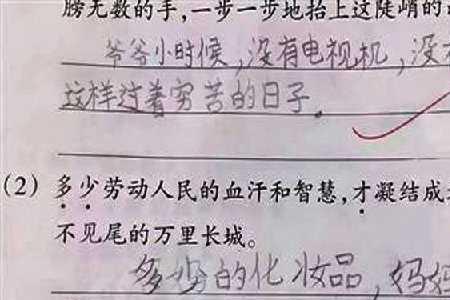 膀无数的手,一步一步地抬上这陡峭的
爷爷小时候,没有电视机,没
这样过着穷苦的日子。
(2) 多少劳动人民的血汗和智慧,才凝结成
不见尾的万里长城。
多少的化妆品,妈妈